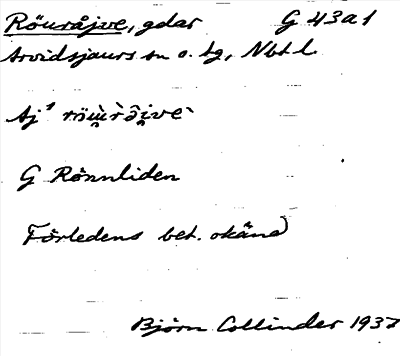 Röuråjve, gdar G 43a1
Arvidsjaurs sn o. tg, Nbtl.
Aj
G Rönnliden
Förledens bet. okänd
Björn Collinder 1937